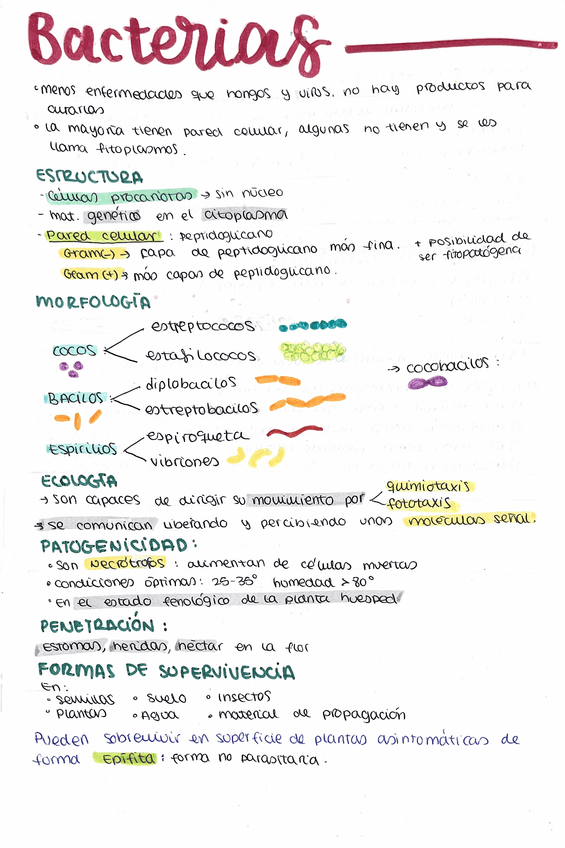 Bacterias
◦ menos enfermedades que hongos y virus. no hay productos para
curarlas
◦ La mayoría tienen pared celular, algunas no tienen y se les
llama fitoplasmos.
ESTRUCTURA
- Células procariotas → sin núcleo
- mat. genético en el citoplasma
- Pared celular : peptidoglicano
Gram(-) → capa de peptidoglicano más fina. + posibilidad de
ser fitopatógena
Gram (+) → más capas de peptidoglicano.
MORFOLOGÍA
COCOS
estreptococos
estafilococos
→ cocobacilos :
BACILOS
diplobacilos
estreptobacilos
ESPIRILIOS
espiroqueta
vibriones
ECOLOGÍA
→ son capaces de dirigir su movimiento por
quimiotaxis
fototaxis
→ se comunican liberando y percibiendo unas moléculas señal.
PATOGENICIDAD:
◦ Son Necrótrofos : alimentan de células muertas
◦ condiciones óptimas: 25-35° humedad >80°
◦ En el estado fenológico de la planta huesped
PENETRACIÓN :
Estomas, heridas, néctar en la flor
FORMAS DE SUPERVIVENCIA
En:
◦ Semillas ◦ Suelo ◦ Insectos
◦ Plantas ◦ Agua ◦ material de propagación
Pueden sobrevivir en superficie de plantas asintomáticas de
forma Epífita : forma no parasitaria.